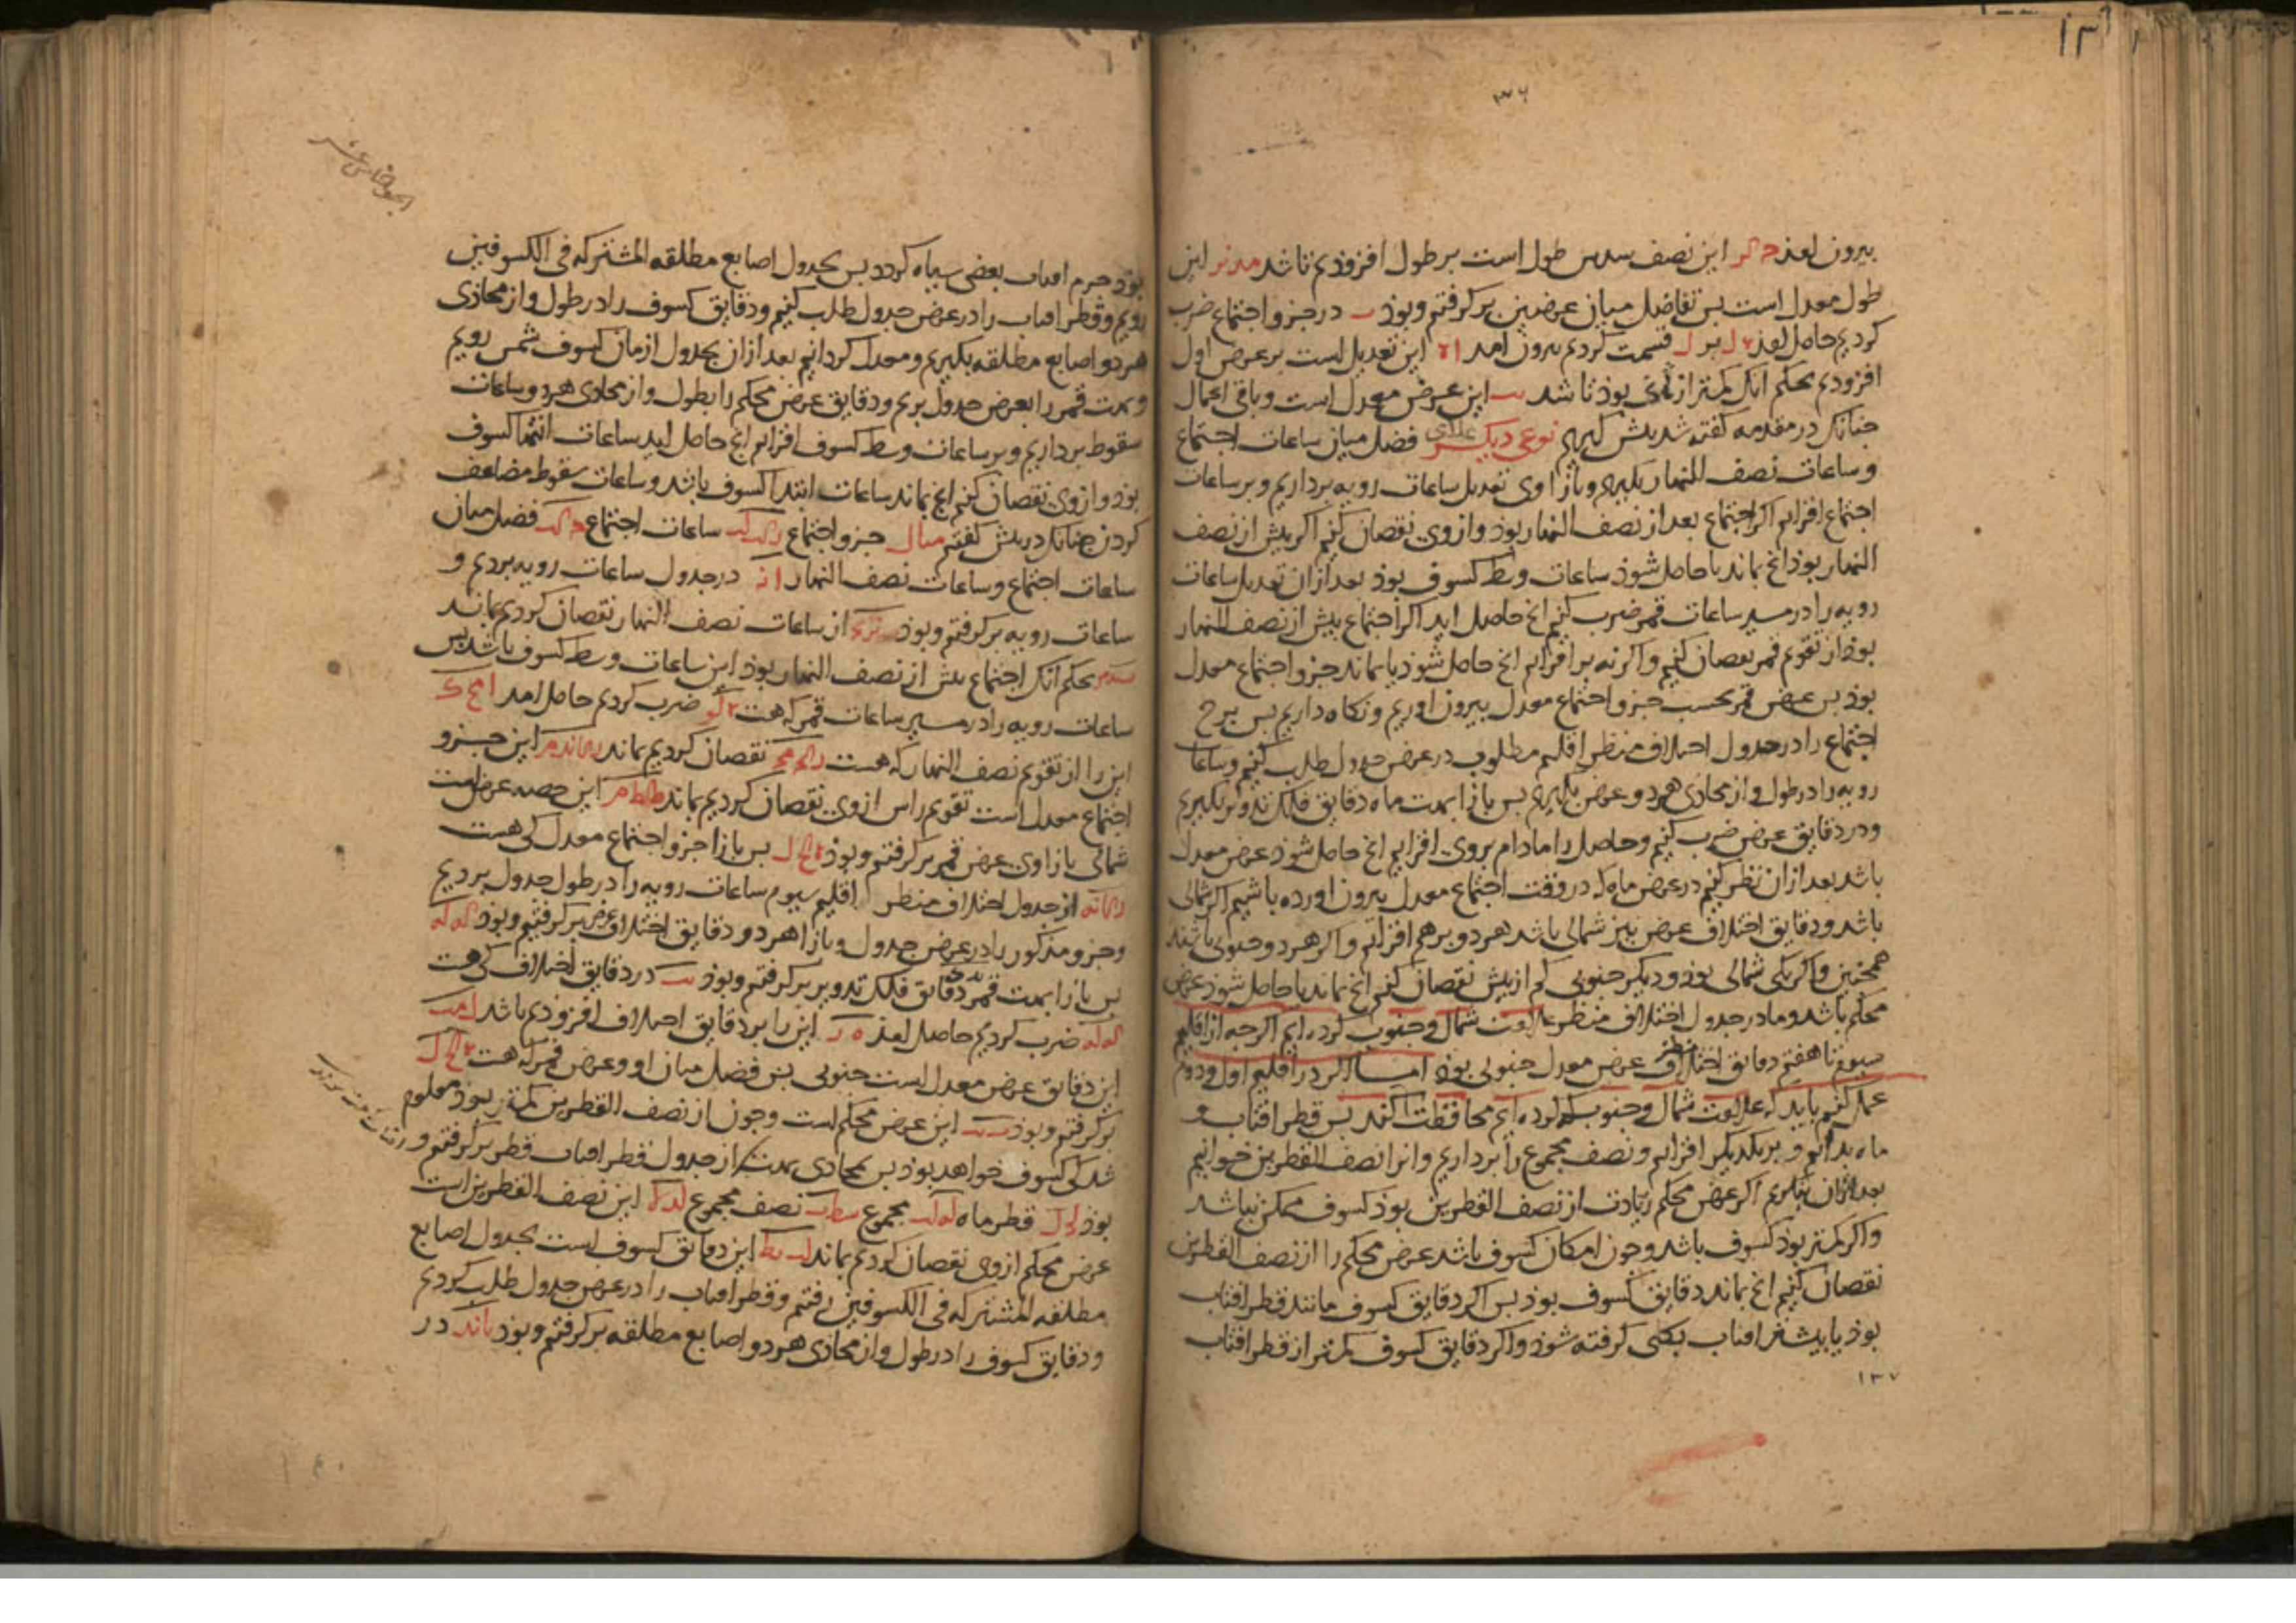 ۱۳
۳۶
بیرون امذ این نصف سدس طول است بر طول افزوذیم تا شد این
طول معدل است بس تفاضل میان عرضین بر کرفتم و بوذ در جزو اجتماع ضرب
کردیم حاصل امذ بر ل قسمت کردیم بیرون امد این تعدیل است بر عرض اول
افزودیم بحکم انک کمتر از بوذ تا شد این عرض معدل است و باقی اعمال
جنانک در مقدمه کفته شد بیش کیریم نوعی دیکر فضل میان ساعات اجتماع
و ساعات نصف النهار بکیریم و باز اوی تعدیل ساعات رویه برداریم و بر ساعات
اجتماع افزایم اکر اجتماع بعد از نصف النهار بوذ و از وی نقصان کنیم اکر بیش از نصف
النهار بوذ انج بماند یا حاصل شوذ ساعات وسط کسوف بوذ بعد ازان تعدیل ساعات
رویه را در مسیر ساعات قمر ضرب کنیم انج حاصل اید اکر اجتماع بیش از نصف النهار
بوذ از تقویم قمر نقصان کنیم و اکر نه بر افزایم انج حاصل شوذ یا بماند جزو اجتماع معدل
بوذ بس عرض قمر بحسب جزو اجتماع معدل بیرون اوریم و نکاه داریم بس برج
اجتماع را در جدول اختلاف منظر اقلیم مطلوب در عرض جدول طلب کنیم و ساعات
رویه را در طول و از محاذی هر دو عرض بکیریم بس بازا بهت ماه دقایق فلک تدویر بکیریم
و در دقایق عرض ضرب کنیم و حاصل را مادام بروی افزایم انج حاصل شوذ عرض معدل
باشد بعد ازان نظر کنیم در عرض ماه که در وقت اجتماع معدل بیرون اورده باشیم اکر شمالی
باشد و دقایق اختلاف عرض نیز شمالی باشد هر دو بر هم افزایم و اکر هر دو جنوبی باشند
همجنین و اکر یکی شمالی بوذ و دیکر جنوبی کم از بیش نقصان کنیم انج بماند یا حاصل شوذ عرض
محکم باشد و ما در جدول اختلاف منظر علامت شمال و جنوب کرده ایم اکرجه از اقلیم
سیوم تا هفتم دقایق اختلاف عرض معدل جنوبی بوذ اما اکر در اقلیم اول و دوم
عمل کنیم باید که علامت شمال و جنوب که کرده ایم محافظت کند بس قطر افتاب و
ماه بدانیم و بر یکدیکر افزایم و نصف مجموع را برداریم و انرا نصف القطرین خوانیم
بعد ازان بنکریم اکر عرض محکم زیادت از نصف القطرین بوذ کسوف ممکن نباشد
و اکر کمتر بوذ کسوف باشد و جون امکان کسوف باشد عرض محکم را از نصف القطرین
نقصان کنیم انج بماند دقایق کسوف بوذ بس اکر دقایق کسوف مانند قطر افتاب
بوذ یا بیشتر افتاب بکلی کرفته شوذ و اکر دقایق کسوف کمتر از قطر افتاب
۱۳۷
بوذ جرم افتاب بعضی سیاه کردد بس بجدول اصابع مطلقه المشترکه فی الکسوفین
رویم و قطر افتاب را در عرض جدول طلب کنیم و دقایق کسوف را در طول و از محاذی
هر دو اصابع مطلقه بکیریم و معدل کردانیم بعد ازان بجدول ازمان کسوف شمس رویم
و بهت قمر را بعرض جدول بریم و دقایق عرض محکم را بطول و از محاذی هر دو ساعات
سقوط برداریم و بر ساعات وسط کسوف افزایم انج حاصل اید ساعات انتها کسوف
بوذ و از وی نقصان کنیم انج بماند ساعات ابتدا کسوف باشد و ساعات سقوط مضاعف
کردن جنانک در بیش کفتیم مثال جزو اجتماع ساعات اجتماع فضل میان
ساعات اجتماع و ساعات نصف النهار در جدول ساعات رویه بردیم و
ساعات رویه بر کرفتم و بوذ از ساعات نصف النهار نقصان کردیم بماند
بحکم انک اجتماع بیش از نصف النهار بوذ این ساعات وسط کسوف باشد بس
ساعات رویه را در مسیر ساعات قمر که هست ضرب کردیم حاصل امد
این را از تقویم نصف النهار که هست نقصان کردیم بماند این جزو
اجتماع معدل است تقویم راس از وی نقصان کردیم بماند این حصه عرض است
شمالی بازاوی عرض قمر بر کرفتم و بوذ بس بازا جزو اجتماع معدل کی هست
از جدول اختلاف منظر اقلیم سیوم ساعات رویه را در طول جدول بردیم
و جزو مذکور را در عرض جدول و بازا هر دو دقایق اختلاف عرض بر کرفتیم و بوذ
بس بازا بهت قمر دقایق فلک تدویر بر کرفتم و بوذ در دقایق اختلاف کی هست
ضرب کردیم حاصل امذ این را بر دقایق اختلاف افزوذیم باشد
این دقایق عرض معدل است جنوبی بس فضل میان او و عرض قمر که هست
بر کرفتم و بوذ این عرض محکم است و جون از نصف القطرین کمتر بوذ معلوم
شد کی کسوف خواهد بوذ بس بمحاذی بهت از جدول قطر افتاب قطر بر کرفتم و
بوذ قطر ماه مجموع نصف مجموع این نصف القطرین است
عرض محکم از وی نقصان کردیم بماند این دقایق کسوف است بجدول اصابع
مطلقه المشترکه فی الکسوفین رفتم و قطر افتاب را در عرض جدول طلب کردیم
و دقایق کسوف را در طول و از محاذی هر دو اصابع مطلقه بر کرفتم و بوذ در